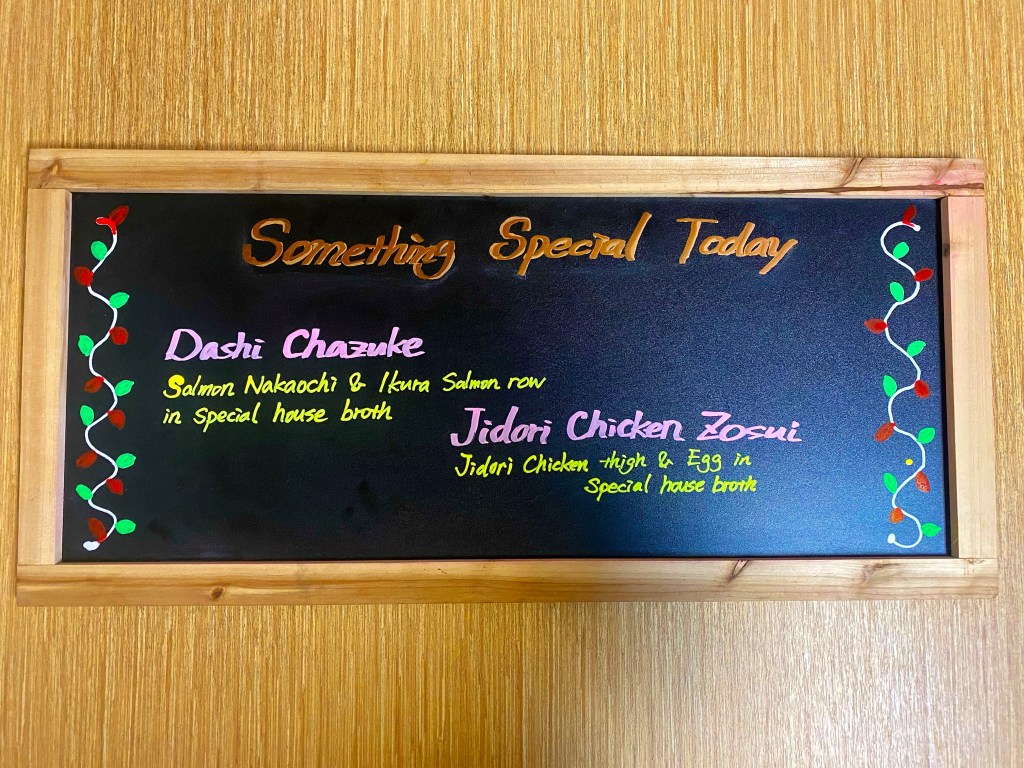 Something Special Today
Dashi Chazuke
Salmon Nakaochi & Ikura Salmon row
in special house broth
Jidori Chicken Zosui
Jidori Chicken thigh & Egg in
Special house broth